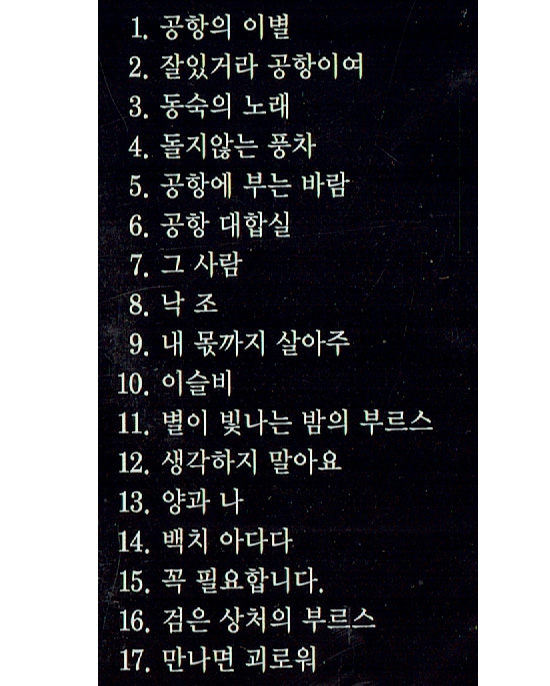 1. 공항의 이별
2. 잘있거라 공항이여
3. 동숙의 노래
4. 돌지않는 풍차
5. 공항에 부는 바람
6. 공항 대합실
7. 그 사람
8. 낙 조
9. 내 몫까지 살아주
10. 이슬비
11. 별이 빛나는 밤의 부르스
12. 생각하지 말아요
13. 양과 나
14. 백치 아다다
15. 꼭 필요합니다.
16. 검은 상처의 부르스
17. 만나면 괴로워